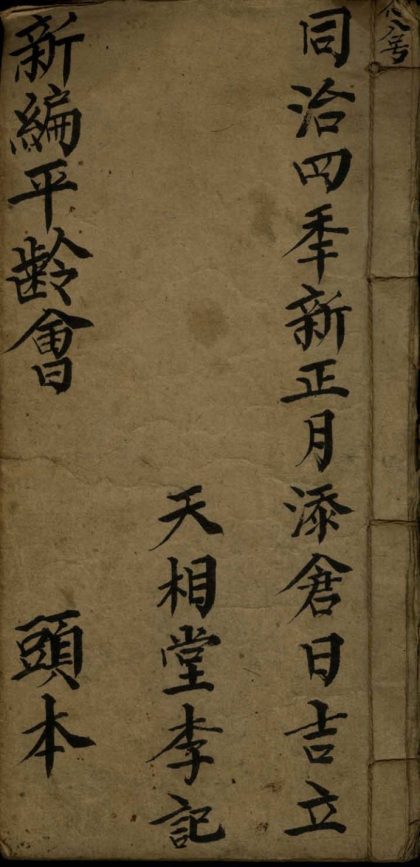 同治四季新正月添倉日吉立
天相堂李記
新編平齡會 頭本